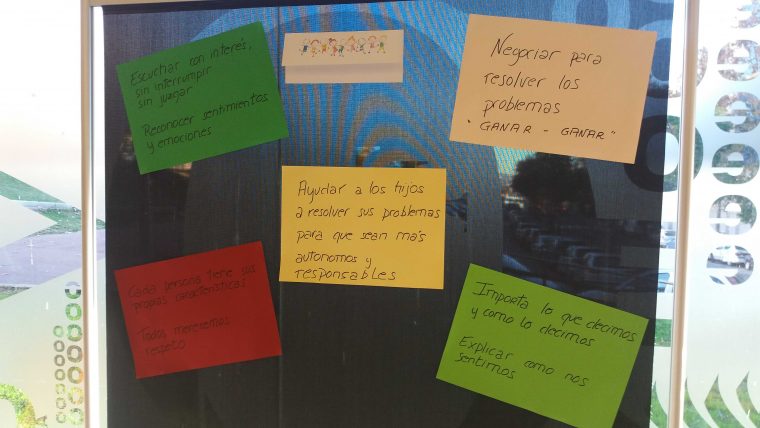 Escuchar con interés,
sin interrumpir
sin juzgar
Reconocer sentimientos
y emociones
Negociar para
resolver los
problemas
"GANAR - GANAR"
Ayudar a los hijos
a resolver sus problemas
para que sean más
autonomos y
responsables
Cada persona tiene sus
propias características
Todos merecemos
respeto
Importa lo que decimos
y como lo decimos
Explicar como nos
sentimos